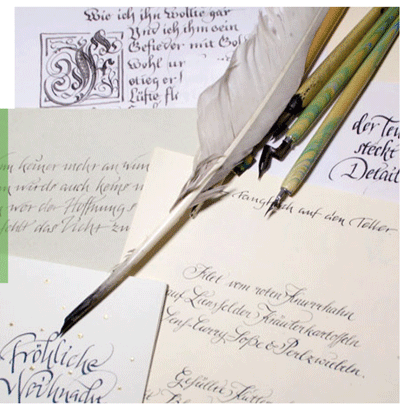 Wie ich ihn wollte gar
Und ich ihm sein
Gefieder mit Gol
Wohl um
stieg er
Lüfte
der Teu
steckt
Detail
keiner mehr an
würde auch keine
wor der Hoffnungs
fehlt das Licht zu
auf den Teller
Filet vom roten Knurrhahn
auf Linsfelder Kräuterkartoffeln
Senf-Curry-Soße & Perlzwiebeln.
Fröhliche
Weihnacht